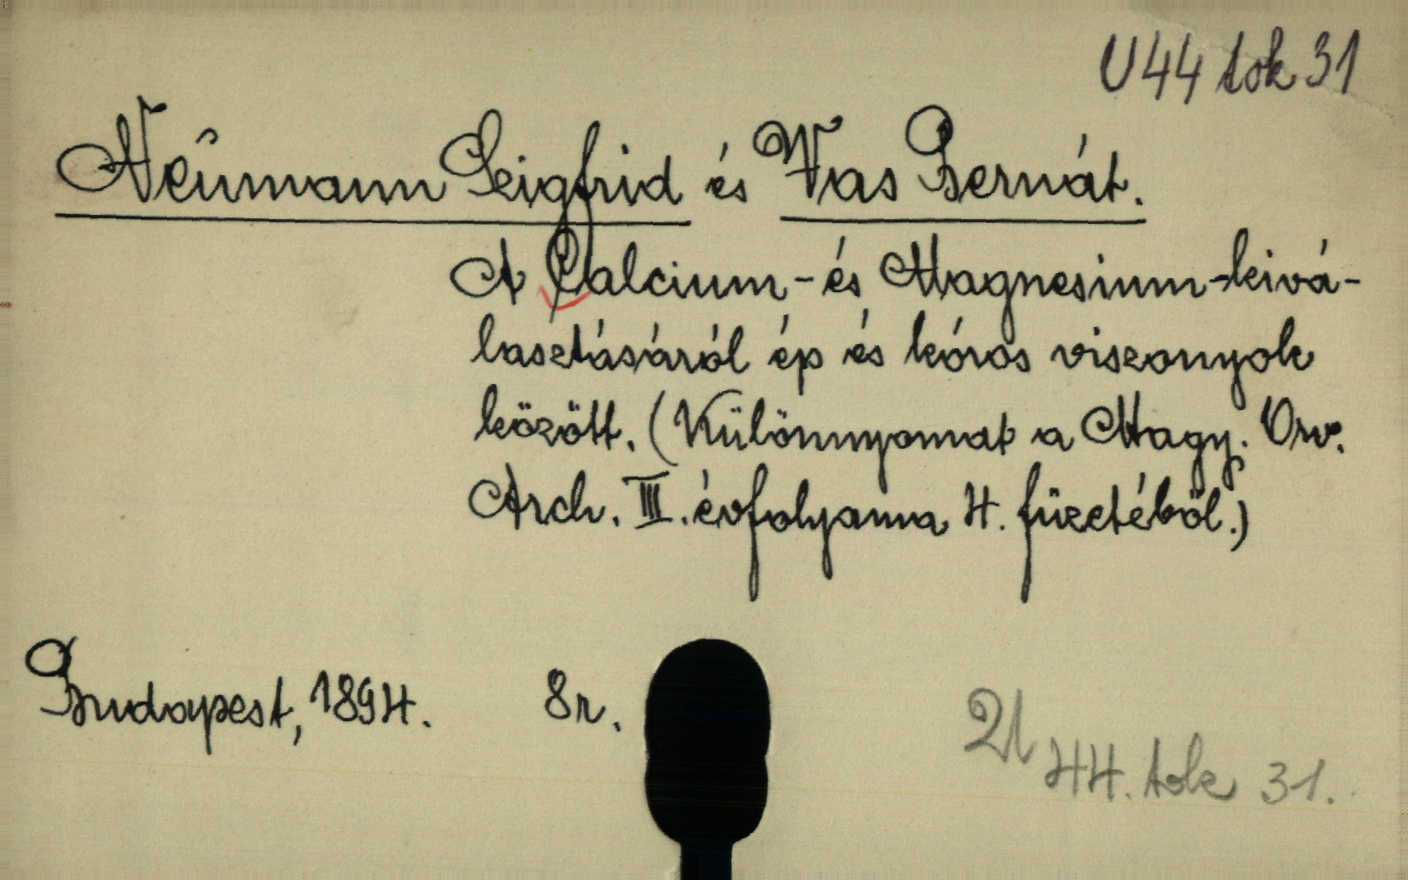 U 44 tok 31
Neumann Seigfrid és Vas Bernát.
A Calcium- és Magnesium-kivá-
lasztásáról ép és kóros viszonyok
között. (Különnyomat a Magy. Orv.
Arch. III. évfolyama 4. füzetéből.)
Budapest, 1894. 8r.
U 44. tok 31.